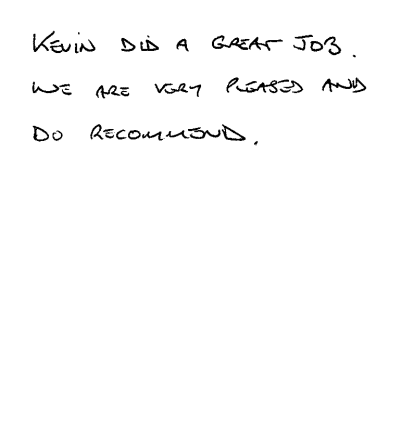 KEVIN DID A GREAT JOB.
WE ARE VERY PLEASED AND
DO RECOMMEND.